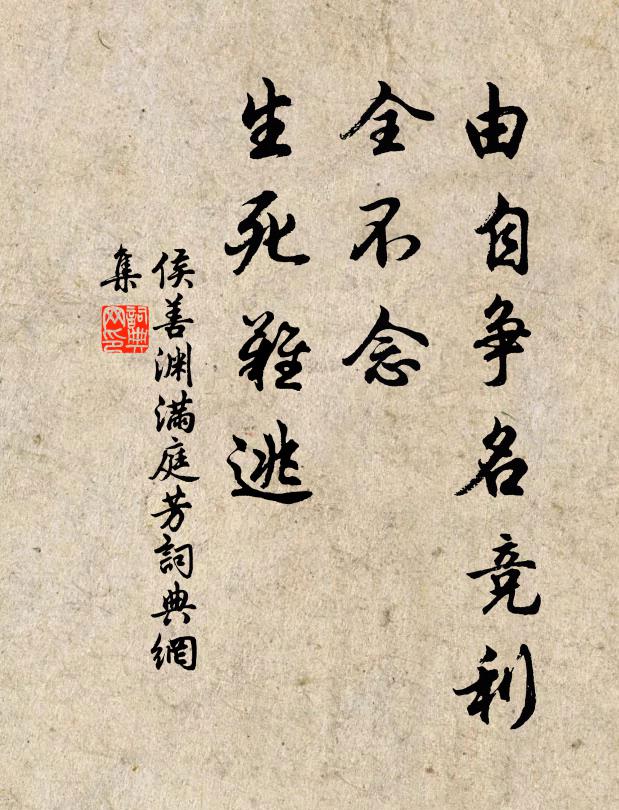 由自争名竞利
全不念
生死難逃
侯善渊满庭芳詞典網
集
詞典
网印